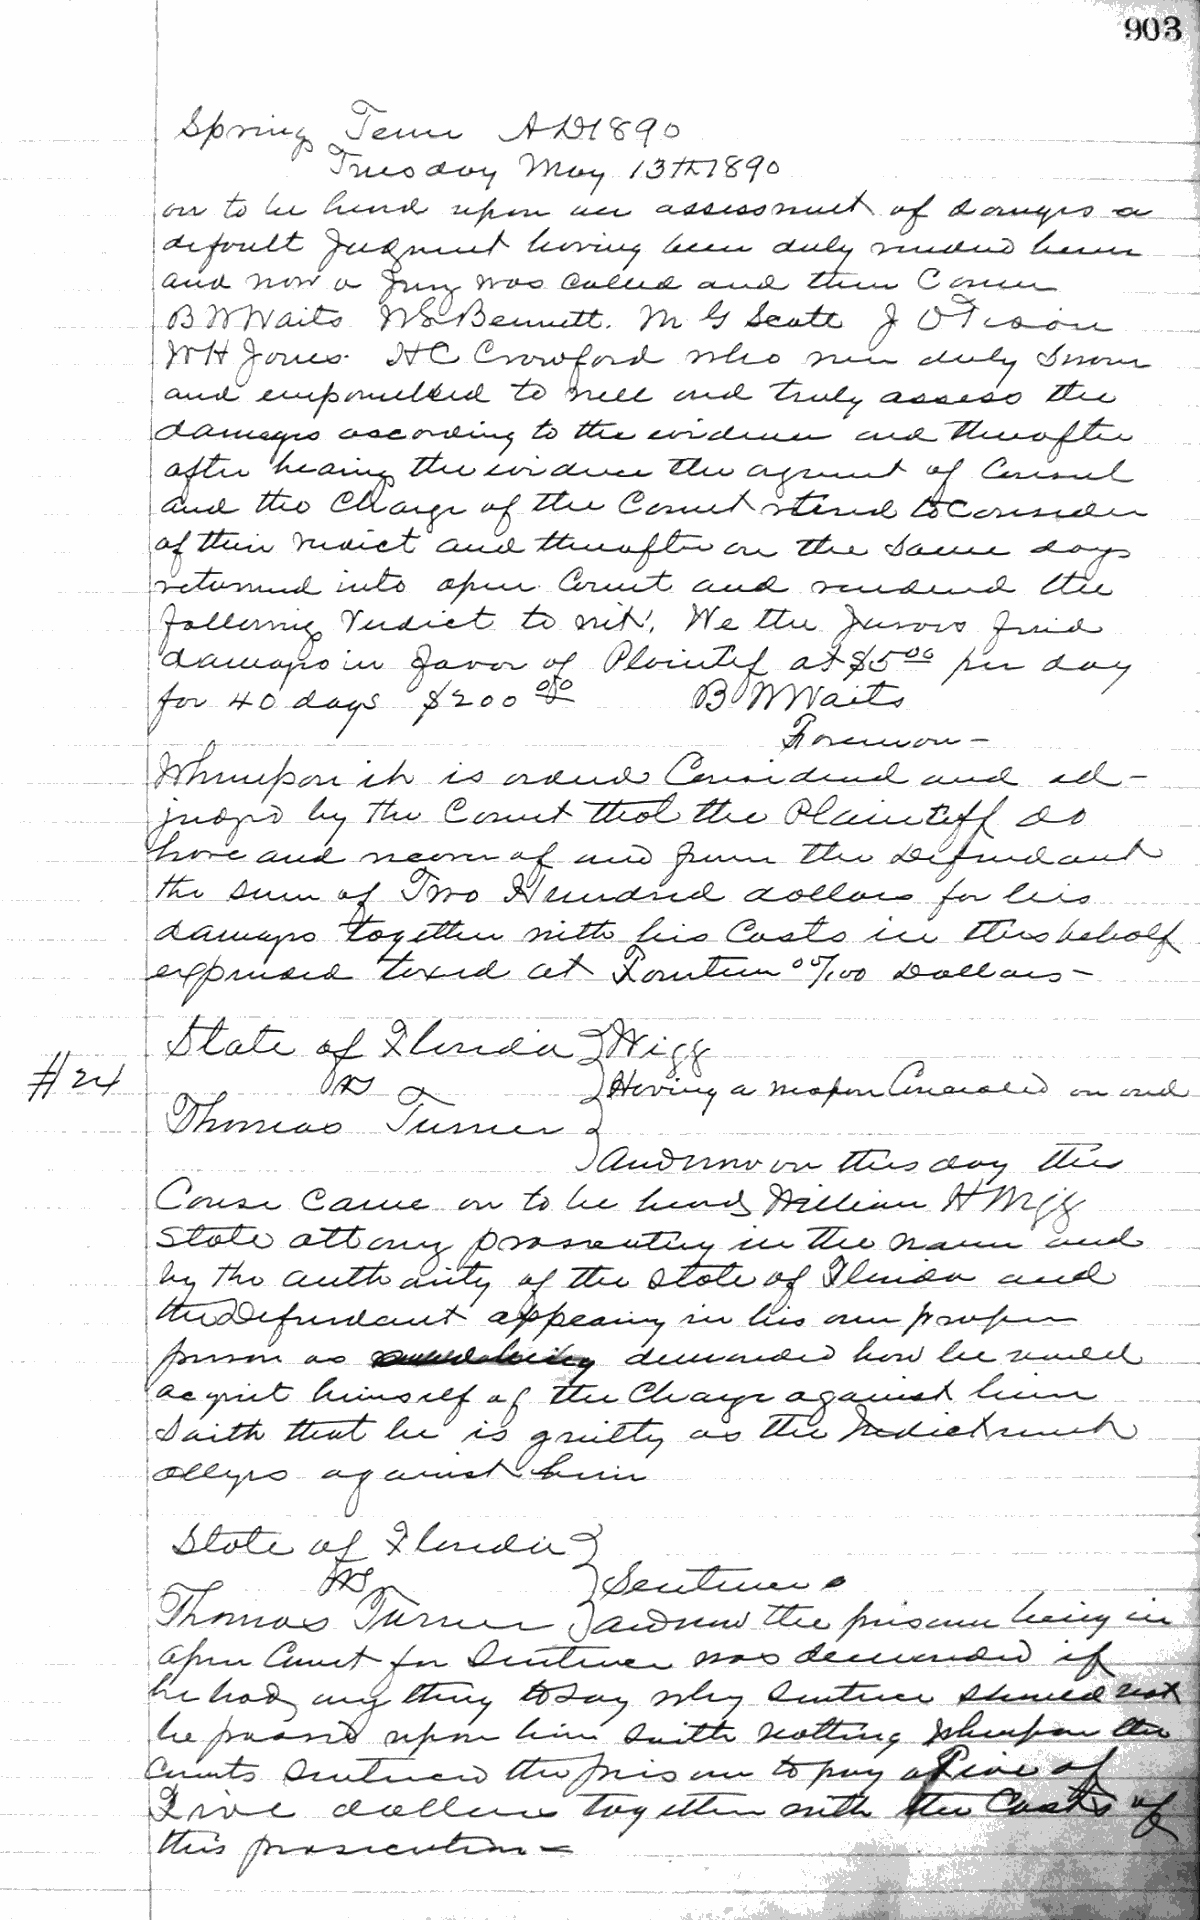 903
Spring Term A D 1890
Tuesday May 13th 1890
on to be heard upon an assessment of damages a
default Judgment having been duly rendered herein
and now a Jury was called and then Comes
B W Waits W S Bennett. M G Scott J O Tison
W H Jones. H C Crawford who were duly Sworn
and empanelled to well and truly assess the
damages according to the evidence and thereafter
after hearing the evidence the agument of Counsel
and the Charge of the Court retired to Consider
of their verdict and thereafter on the Same day
returned into open Court and rendered the
following Verdict to wit; We the Jurors find
damages in favor of Plaintif at $5.00 per day
for 40 days $200 00 B W Waits
Foreman -
Whereupon it is ordered Considered and ad-
judged by the Court that the Plaintiff do
have and recover of and from the Defendant
the Sum of Two Hundred dollars for his
damages together with his Costs in this behalf
expended taxed at Fourteen 00/100 Dollars -
State of Florida } Wigg
#24
vs } Having a weapon Concealed on and
Thomas Turner
And now on this day this
Cause Came on to be heard William H Wigg
State attorney prosecuting in the name and
by the authority of the State of Florida and
the Defendant appearing in his own proper
person as demanded how he would
acquit himself of the Charge against him
Saith that he is guilty as the Indictment
alleges against him
State of Florida }
vs } Sentence
Thomas Turner } And now the prisoner being in
open Court for Sentence was demanded if
he had any thing to say why Sentence Should not
be passed upon him Saith Nothing Whereupon the
Courts Sentence the prisoner to pay a Fine of
Five dollars together with the Costs of
this prosecution -